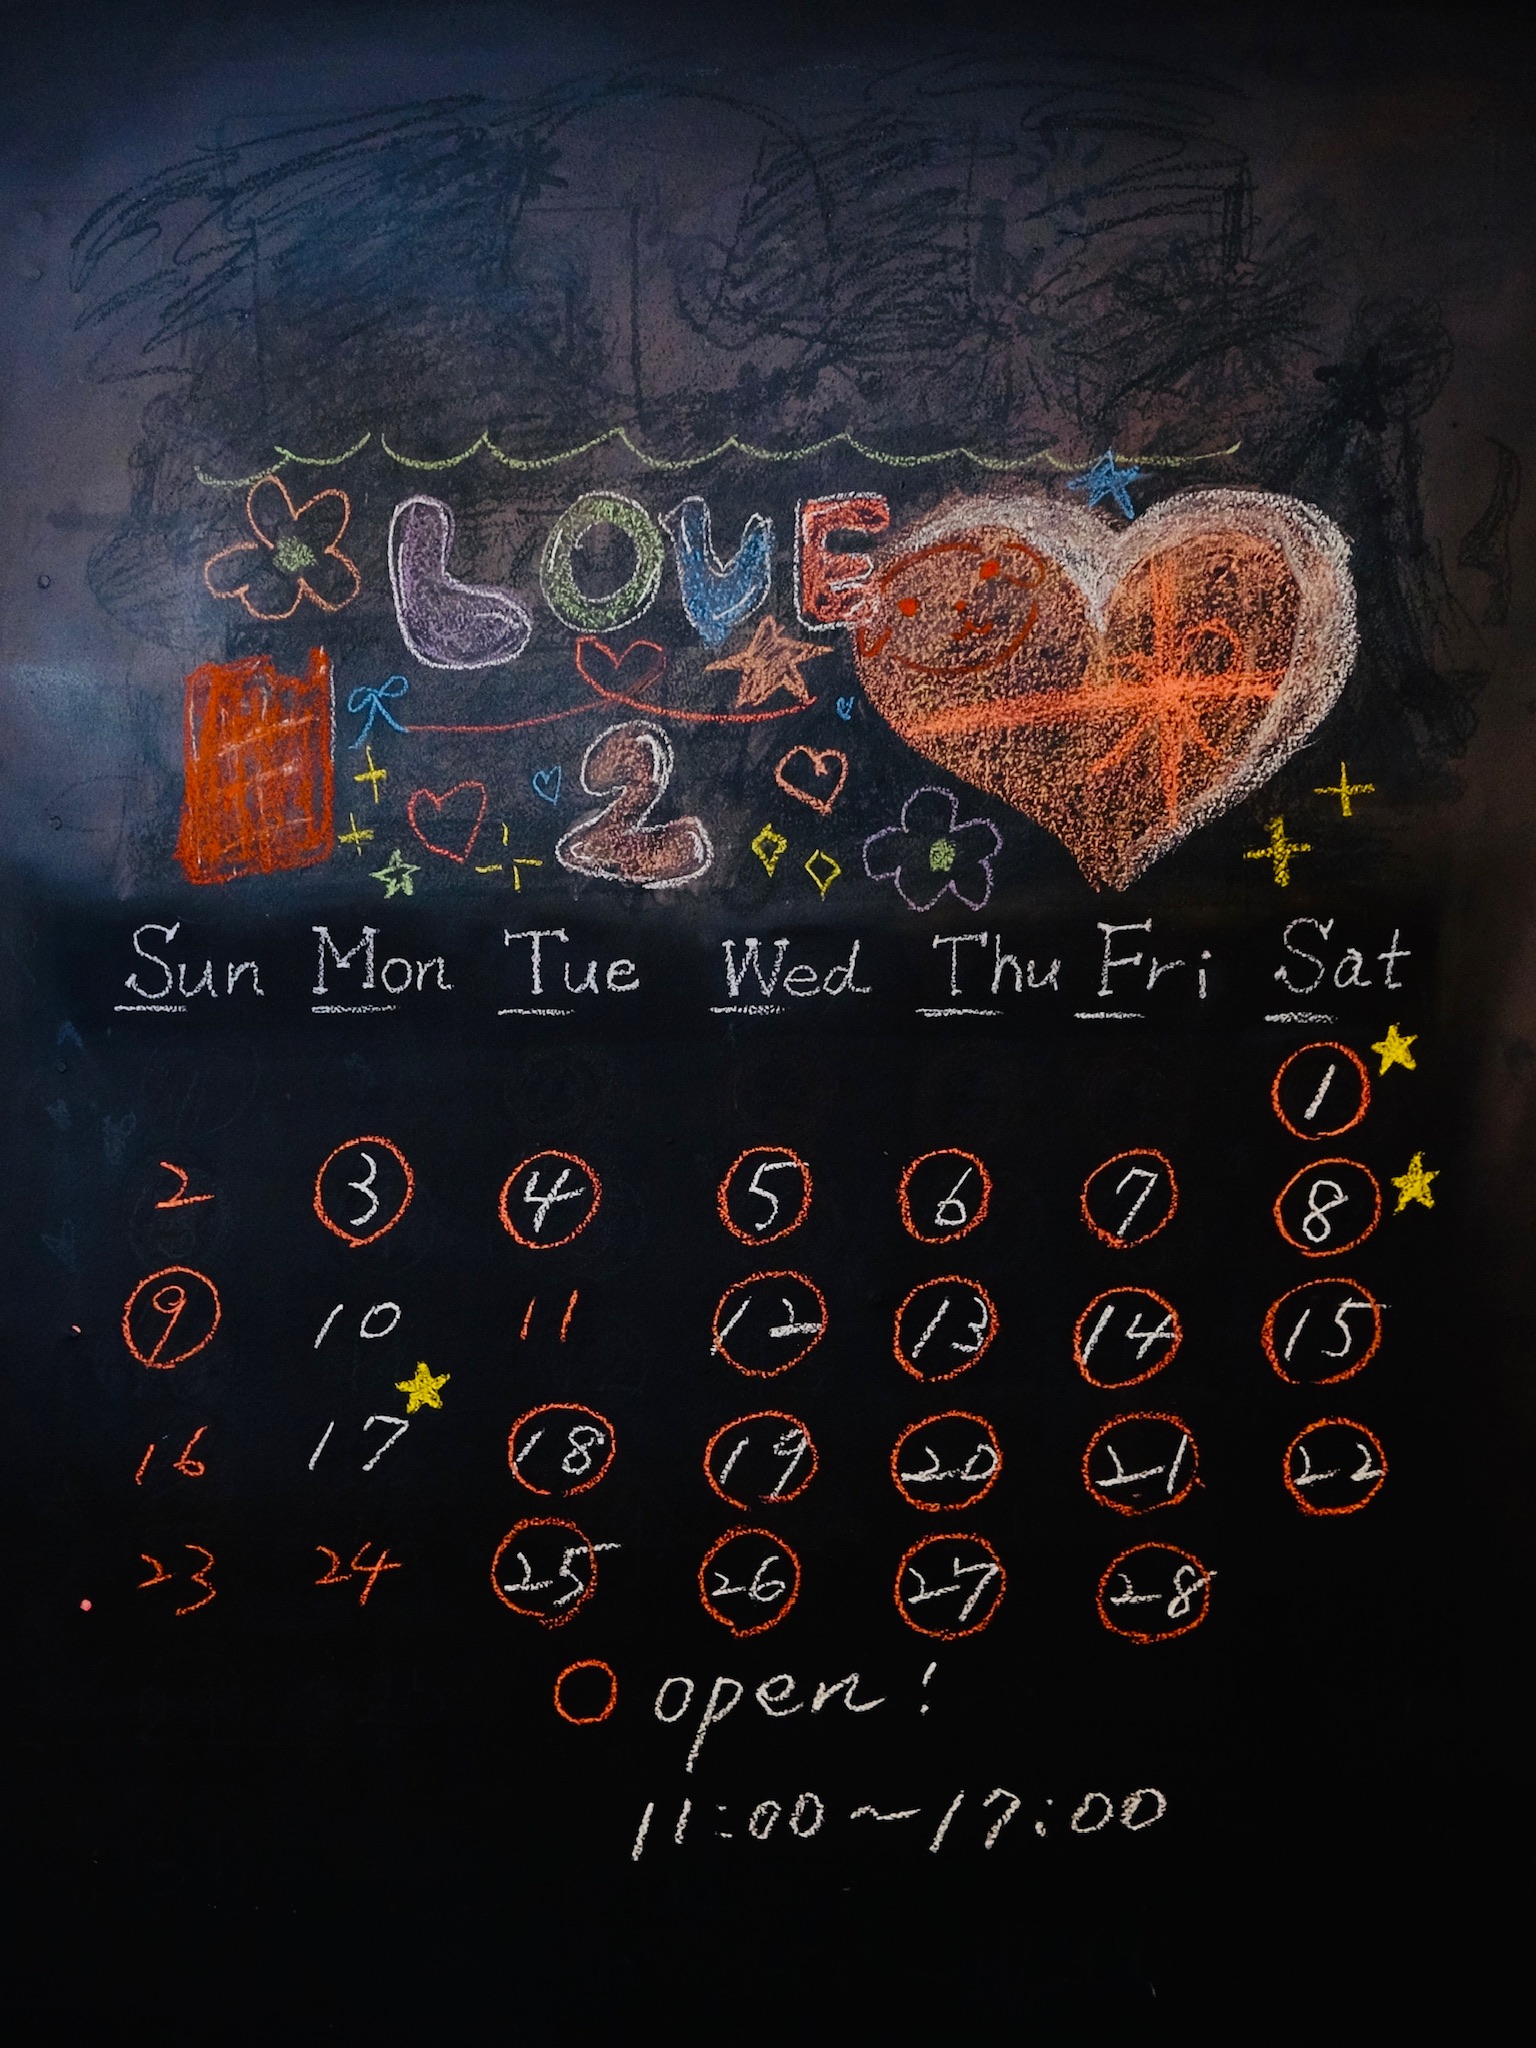 LOVE
2
Sun Mon Tue Wed Thu Fri Sat
1
2 3 4 5 6 7 8
9 10 11 12 13 14 15
16 17 18 19 20 21 22
23 24 25 26 27 28
open!
11:00~17:00